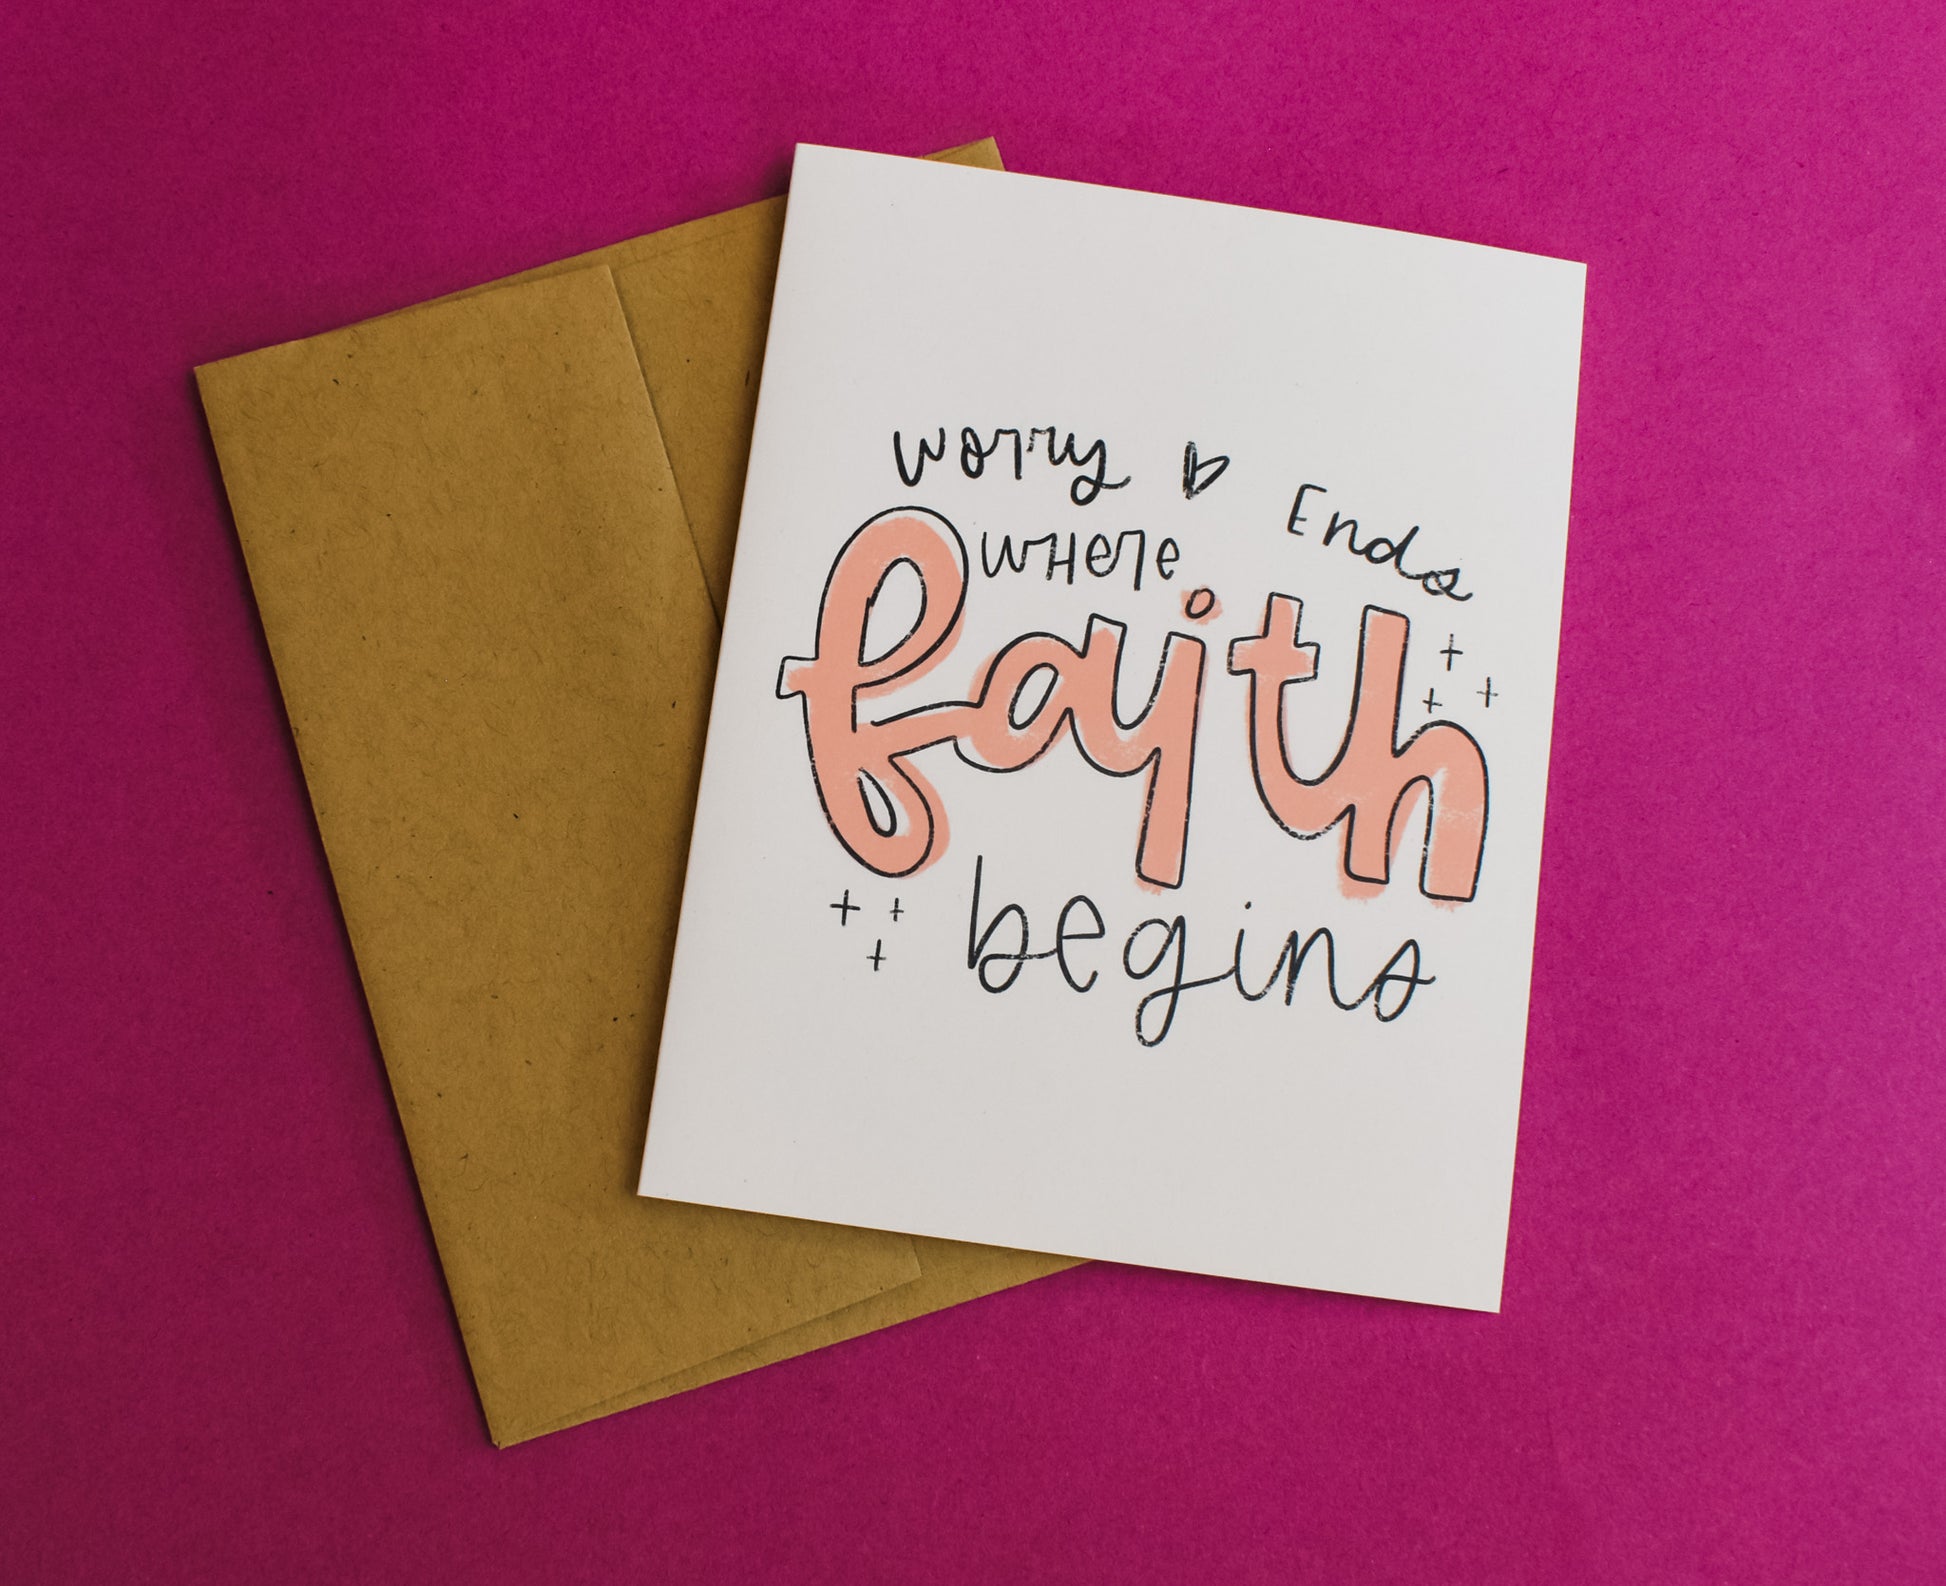 worry Ends
wHere
faith
begins